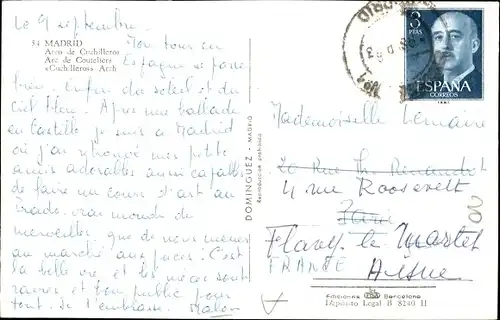 Le 9 septembre.
51 MADRID
Arco de Cuchilleros
Arc de Couteliers
«Cuchilleros» Arch
Mon tour en
Espagne se passe
bien. Enfin du soleil et du
ciel bleu. Après une ballade
en Castille je suis à Madrid
où j'ai retrouvé mes petits
amis adorables aussi capables
de faire un cours d'art au
Prado, vrai monde de
merveilles, que de nous mener
au marché aux puces: C'est
la belle vie et les mécs sont
ravies et ton public pour
tout. Je t'embrasse.
DOMINGUEZ - MADRID
Reproducción prohibida
3
PTAS
ESPAÑA
CORREOS
MADRID
Mademoiselle Lemaire
20 Rue Th. Renaudot
4 rue Roosevelt
Paris
Flavy le Martel
FRANCE Aisne
Emisiones Barcelona
Depósito Legal B 8240 II